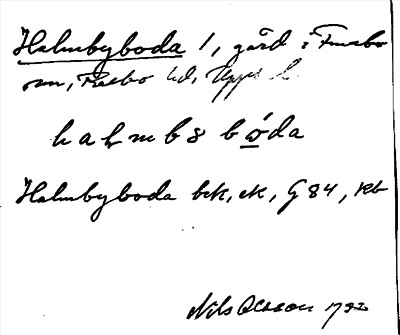 Halmbyboda 1, gård i Funbo
sn, Rasbo hd, Upps l.
halmbs bóda
Halmbyboda bek, ek, G 84, Kb
Nils Olsson 1932